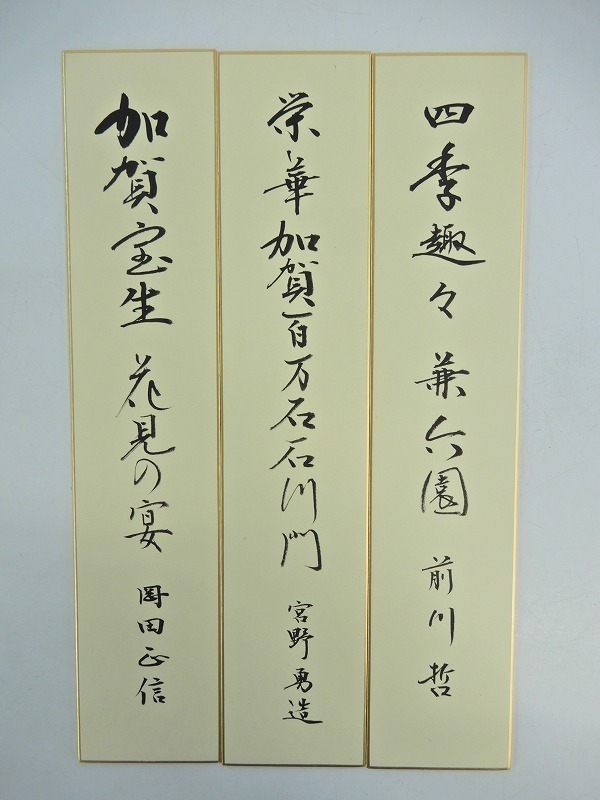 四季趣々 兼六園 前川哲
栄華加賀百万石石川門 宮野勇造
加賀宝生 花見の宴 岡田正信